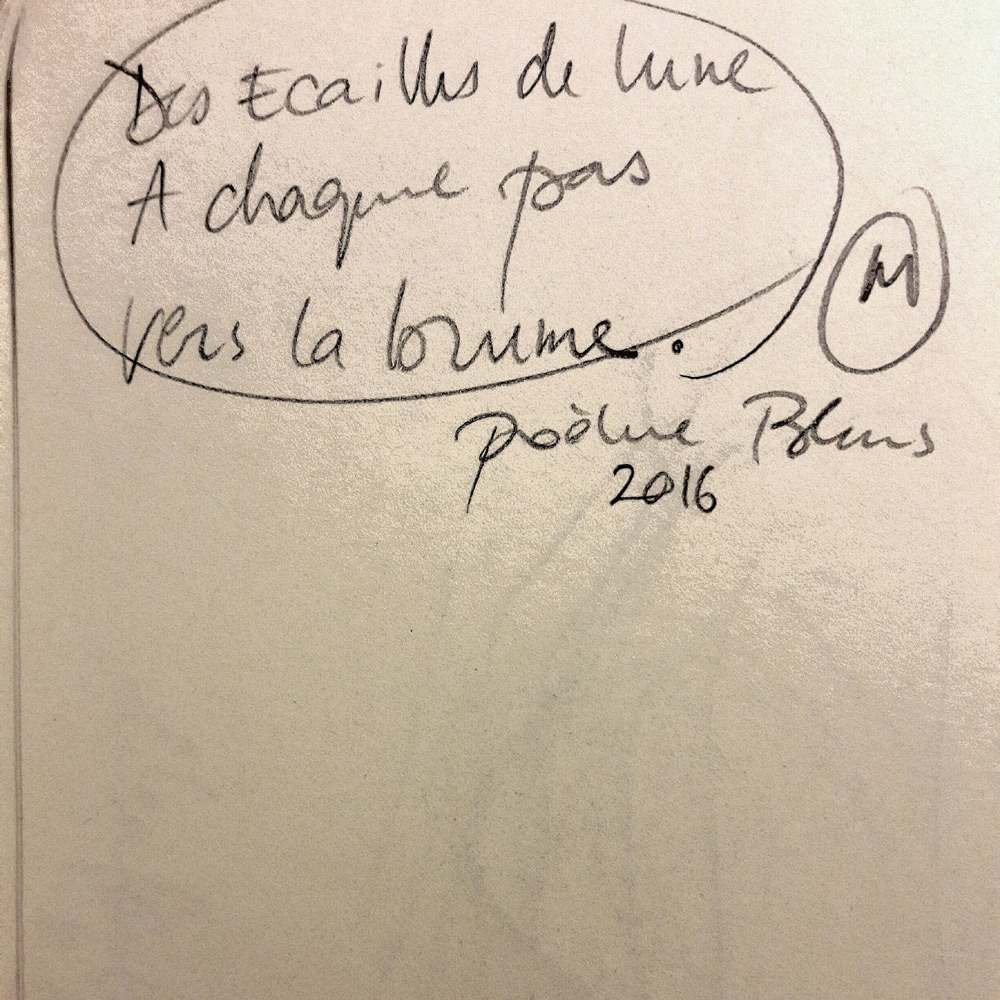 Des Ecailles de lune
A chaque pas
vers la brume.
M
2016